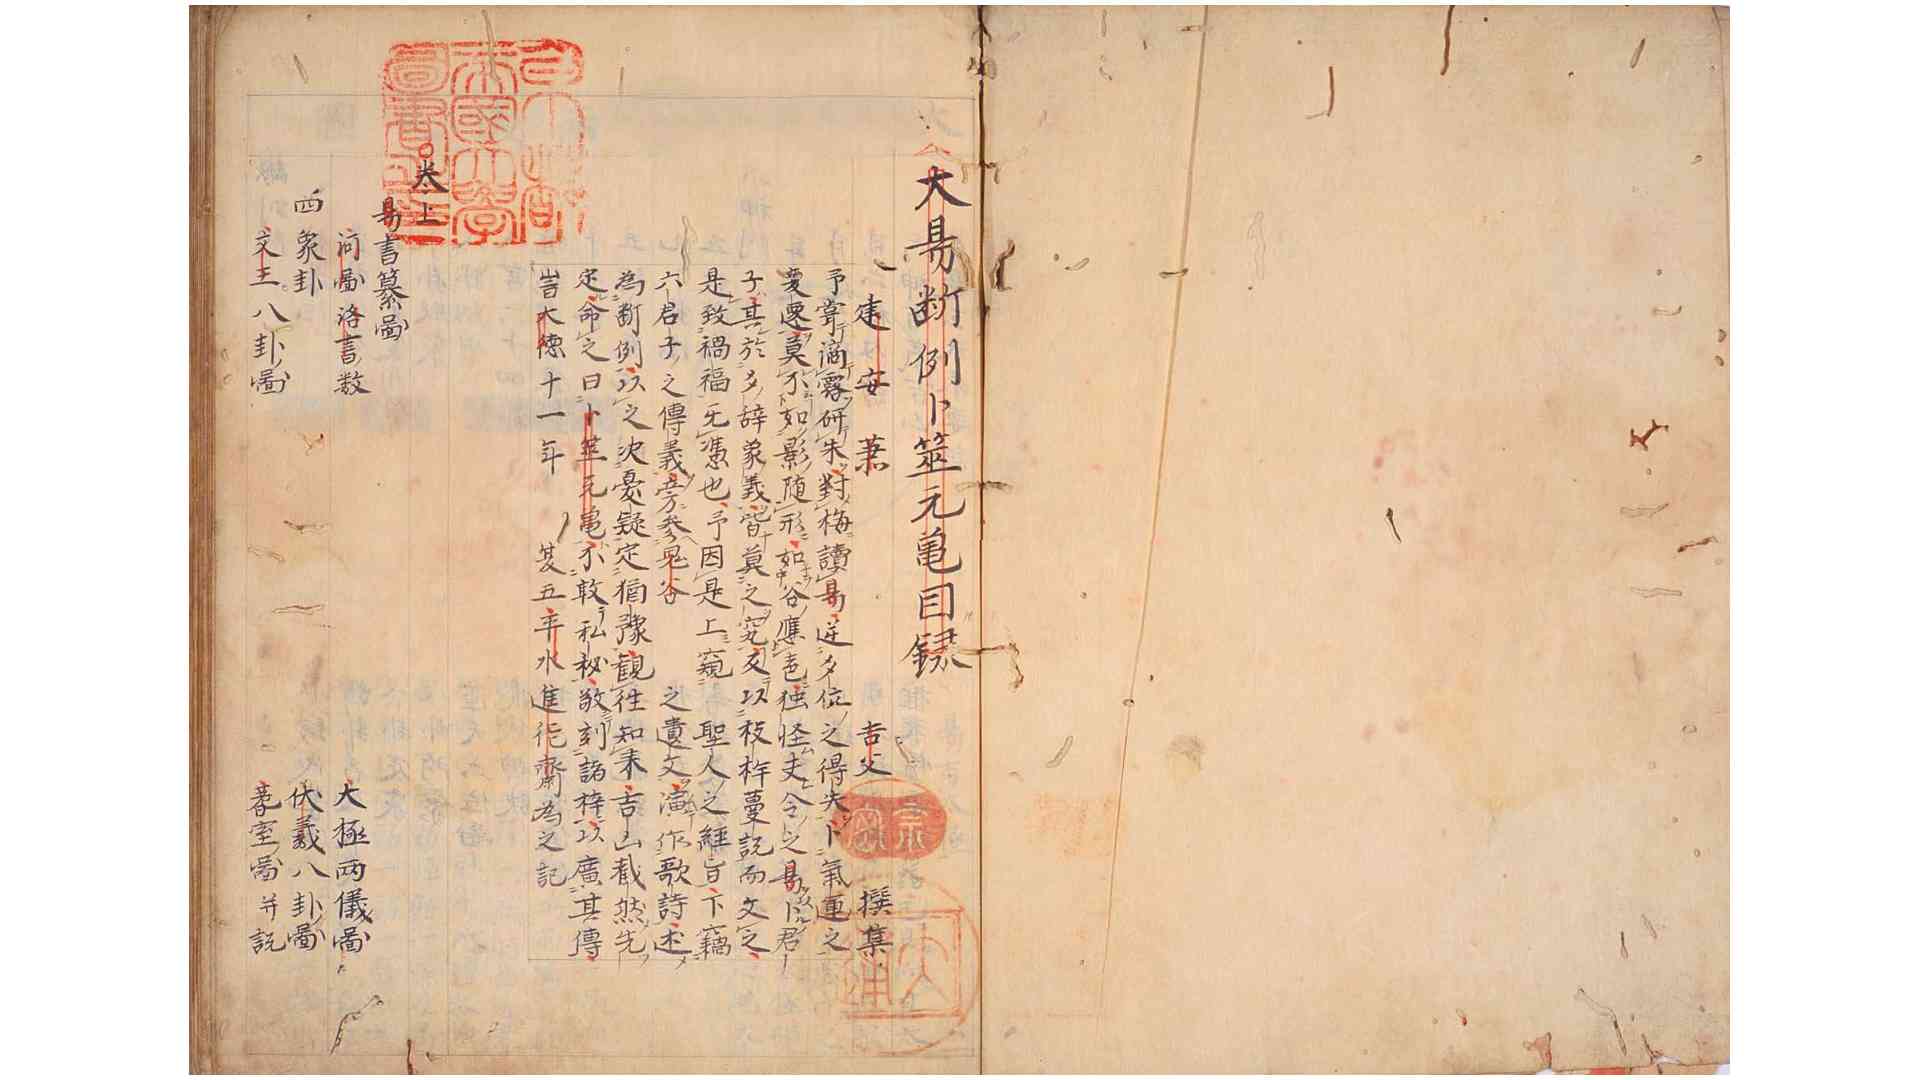 大易断例卜筮元亀目録
建安 萧 吉父 撰集
予嘗滴露研朱對梅讀易逆多位之得失卜氣運之
憂遷莫不如影随形如谷應声独怪夫今之易卜君
子其於多辞象義皆莫之究友以枝梓蔓説而文之
是致禍福无憑也予因是上窺 聖人之經旨下竊
六君子之傳義旁参鬼谷 之遺文演作歌詩述
為断例以之决憂疑定猶豫観往知来吉凶截然先
定命之曰卜筮元亀不敢私秘敬刻諸梓以廣其傳
旹大德十一年 菱五平水進徳齋為之記
巻上
易書纂圖
河圖洛書数 大極两儀圖
四象卦 伏羲八卦圖
文王八卦圖 蓍室圖并説